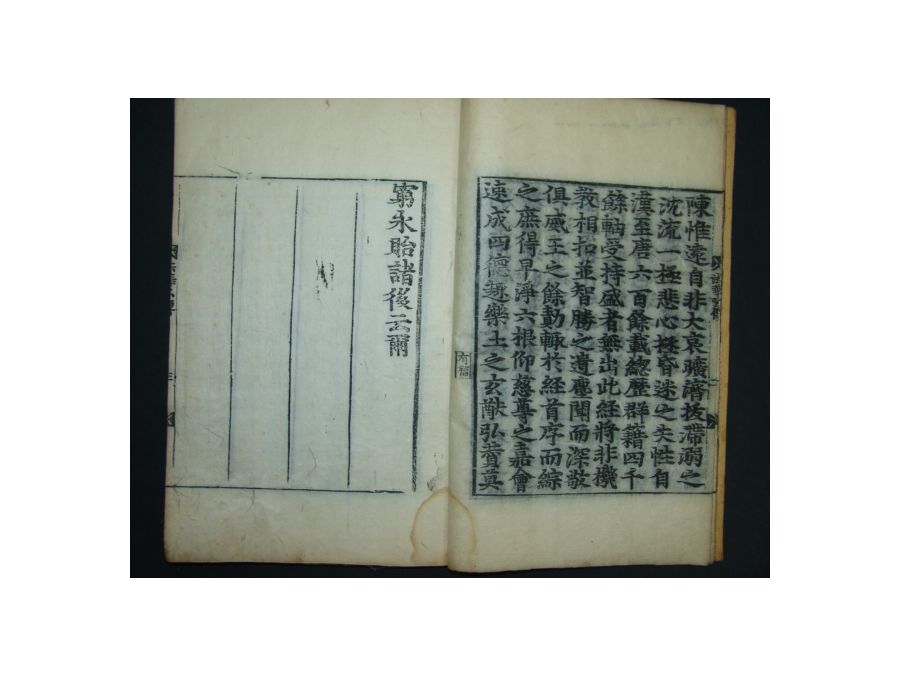 陳惟遠自非大哀曠濟拔滯溺之
沈流一極悲心拯昏迷之失性自
漢至唐六百餘載總歷群籍四千
餘軸受持盛者無出此經將非機
教相扣並智勝之遺塵聞而深敬
俱威王之餘勣輒於經首序而綜
之庶得早淨六根仰慈尊之嘉會
速成四德趣樂土之玄猷弘賛莫
窮永貽諸後云爾
有福